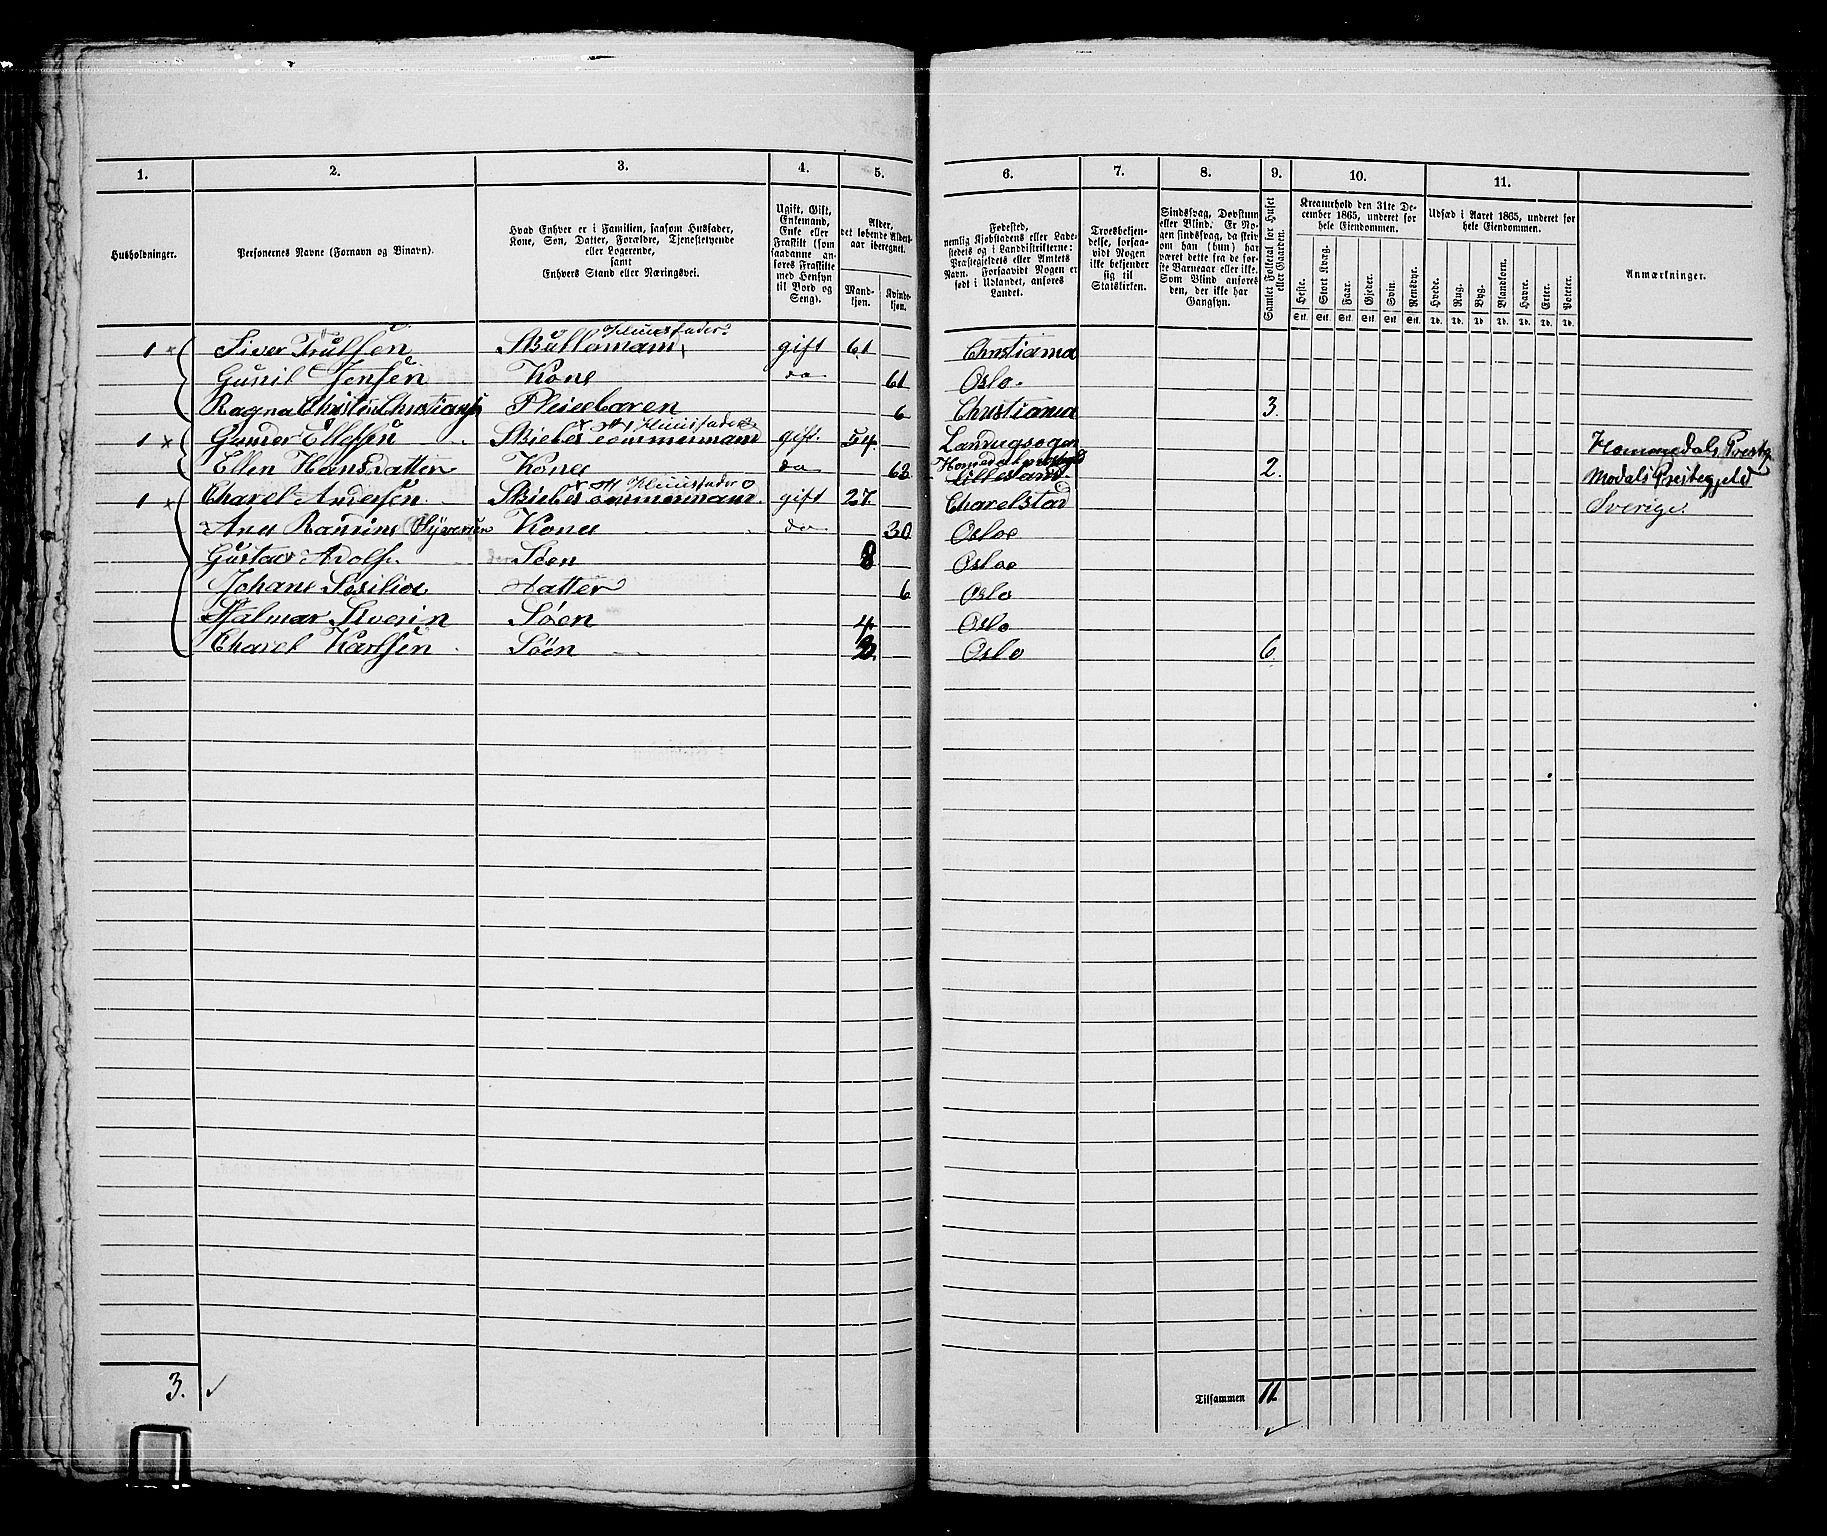 1. 2. 3. 4. 5. 6. 7. 8. 9. 10. 11.
Husholdninger.
Personernes Navne (Fornavn og Binavn).
Hvad Enhver er i Familien, saasom Husfader,
Kone, Søn, Datter, Forældre, Tjenestetyende
eller Logerende,
samt
Enhvers Stand eller Næringsvei.
Ugift, Gift,
Enkemand,
Enke eller
Fraskilt (som
saadanne an-
føres Fraskilte
med Hensyn
til Bord og
Seng).
Alder,
det løbende Alders-
aar iberegnet.
Mand-
kjøn.
Kvinde-
kjøn.
Fødested,
nemlig Kjøbstadens eller Lade-
stedets og i Landdistrikterne:
Præstegjeldets eller Amtets
Navn. Forsaavidt Nogen er
født i Udlandet, anføres
Landet.
Troesbekjen-
delse, forsaa-
vidt Nogen
ikke bekjender
sig til
Statskirken.
Sindssvag, Døvstum
eller Blind. Er No-
gen sindssvag, da skriv
om han (hun) har
været dette fra de før-
ste Barneaar eller ikke.
Som Blind anføres
den, der ikke har
Gangsyn.
Samlet Folketal for Huset
eller Gaarden.
Kreaturhold den 31te De-
cember 1865, underet for
hele Eiendommen.
Heste. Stort Kvæg. Faar. Gjeder. Svin. Rensdyr.
Stk. Stk. Stk. Stk. Stk. Stk.
Udsæd i Aaret 1865, underet for
hele Eiendommen.
Hvede. Rug. Byg. Blandkorn. Havre. Erter. Poteter.
Td. Td. Td. Td. Td. Td. Td.
Anmærkninger.
1 × Siver Trulsen Huusfader gift 61 Christiania
Gunil Jensen Kone do 61 Oslo.
Ragna Christen Pleiebaren 6 Christiania 3.
1 × Gunder Ellefsen Huusfader gift. 54. Homedals Prestg.
Ellen Hansdatter Kone do 63 Lillesand. 2. Prestegjeld
1 × Charel Andersen. Huusfader gift 27. Charelstad Sverige.
Ane Kone do 30 Osloe
Gustav Adolf. Søen 8 Osloe
Johane Sesilie Datter 6 Oslo
Hjalmar Siverin Søen 4 Oslo
Charel Karlsen Søen 2. Oslo 6.
3. ✓
Tilsammen 11
✓